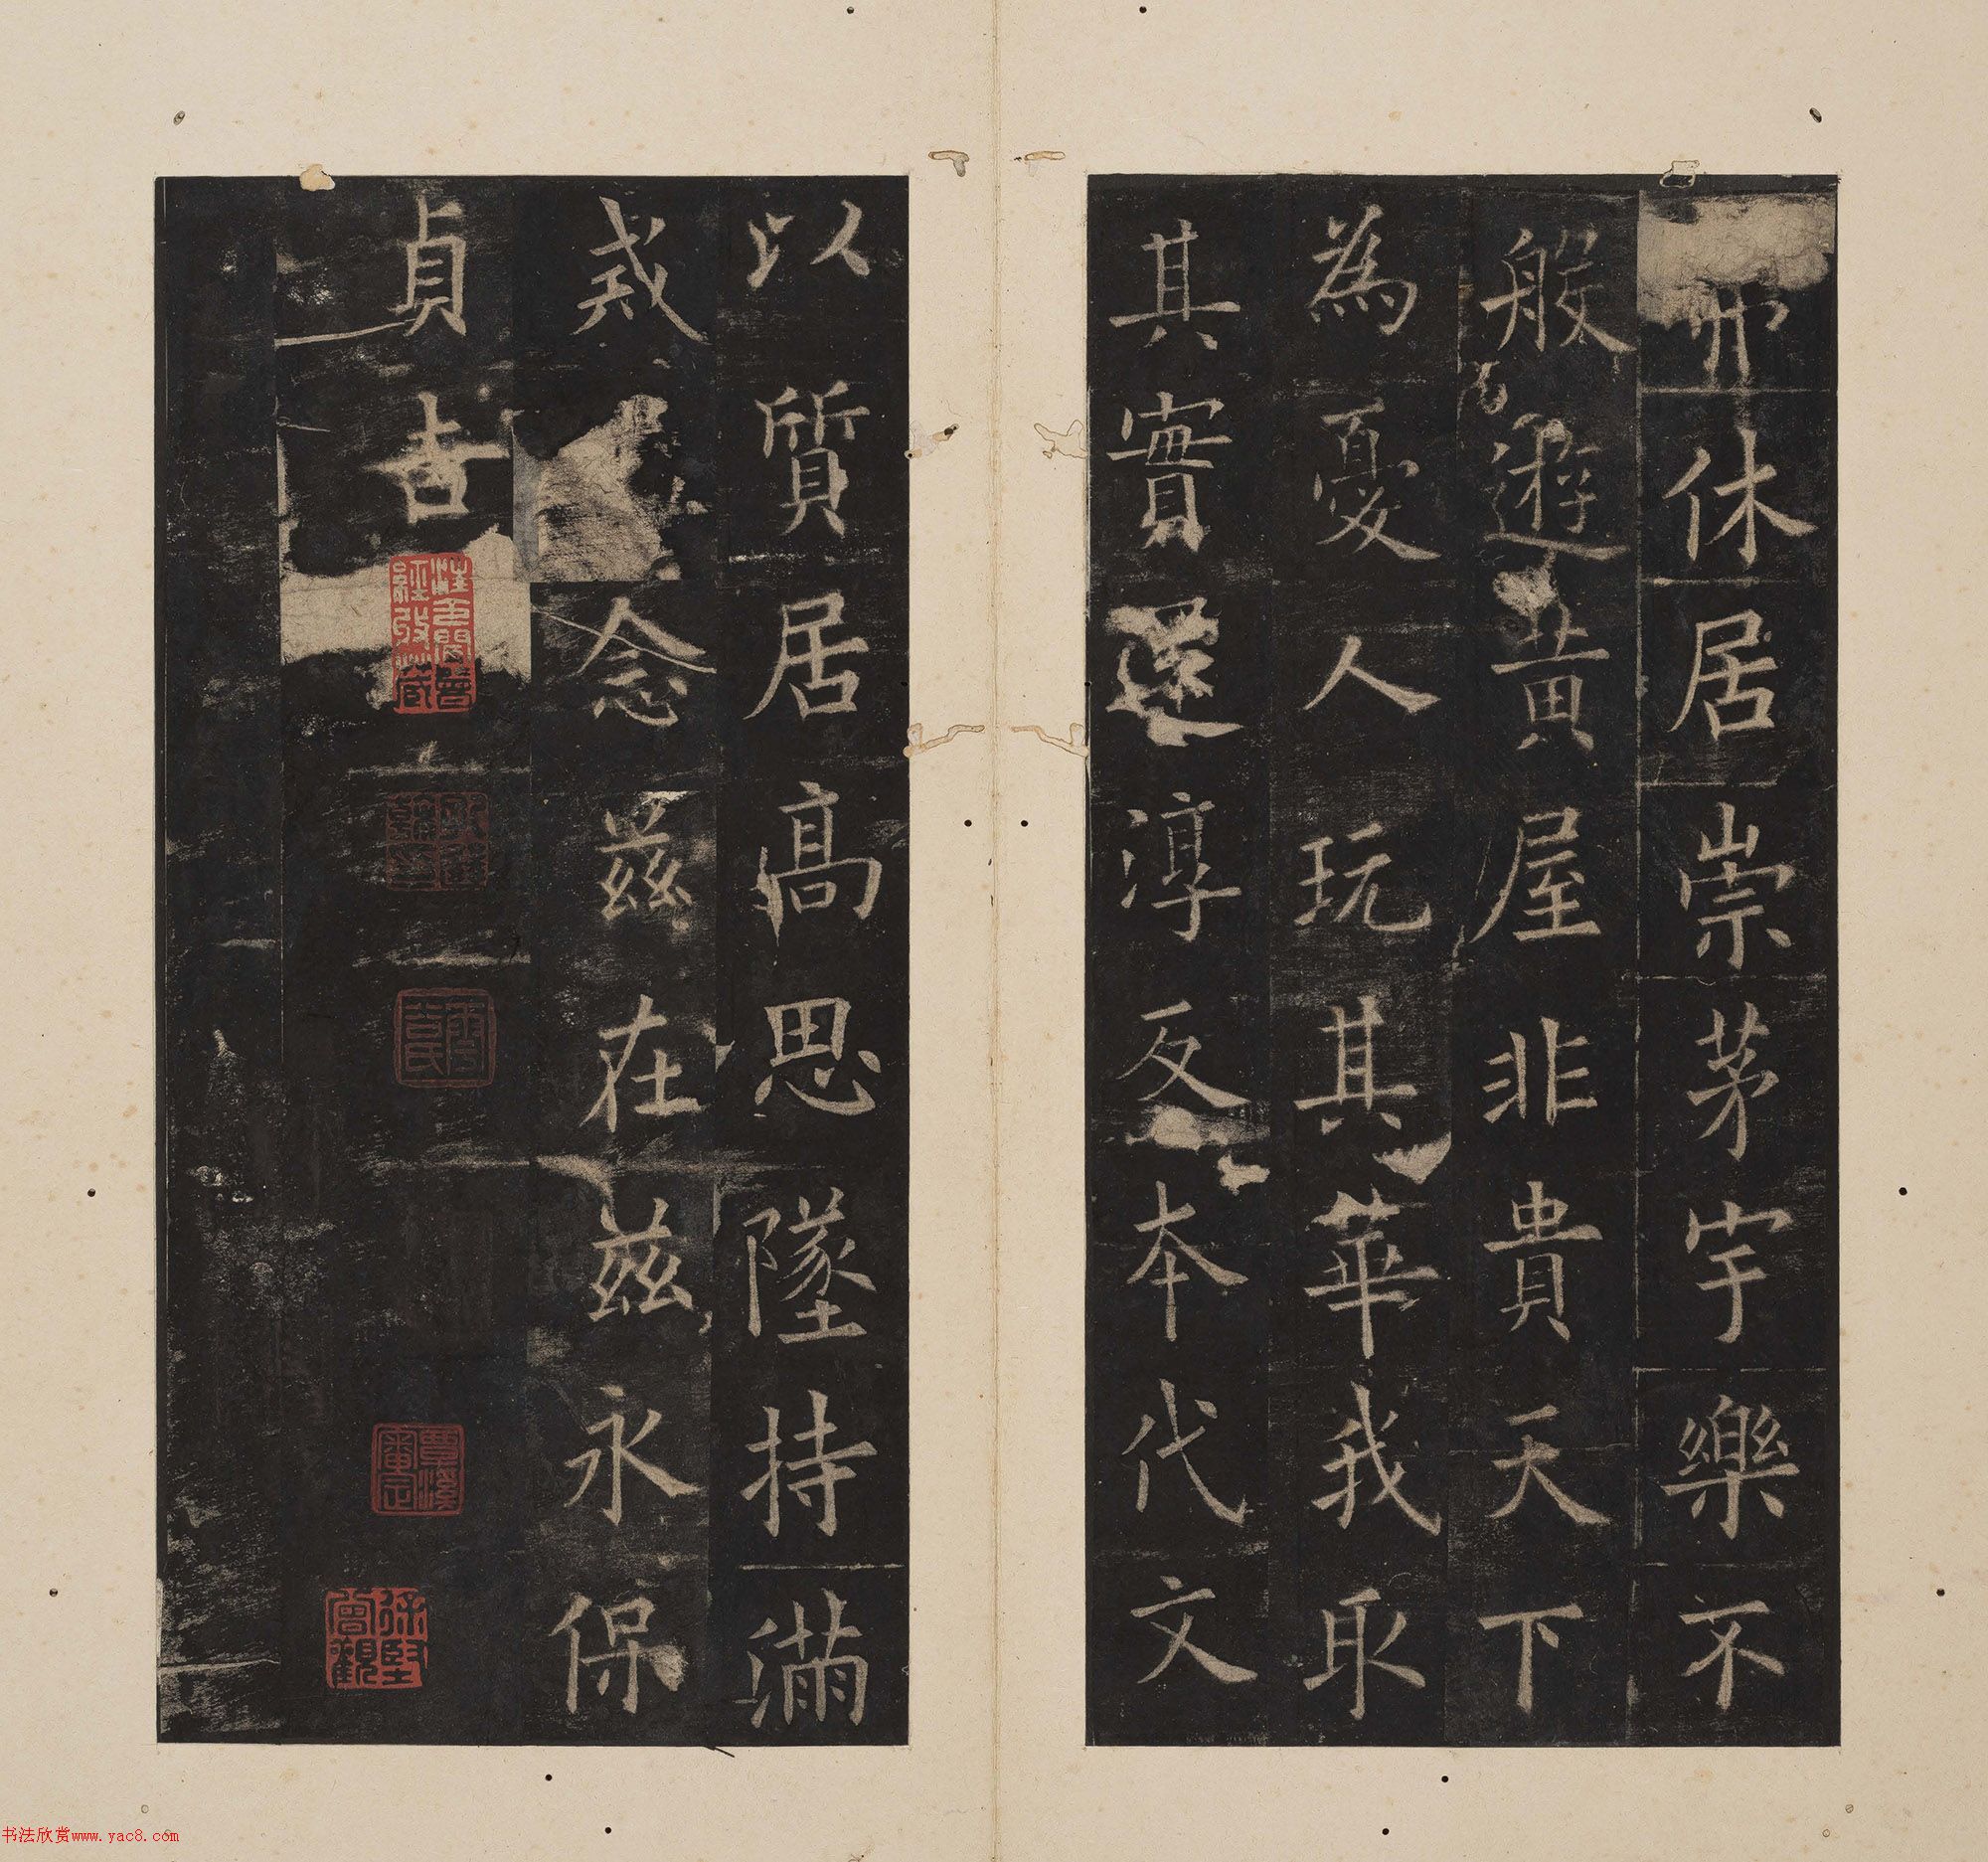 休居崇茅宇樂不
般遊黃屋非貴天下
為憂人玩其華我取
其實還淳反本代文
以質居高思墜持滿
戒念茲在茲永保
貞吉
覃溪審定
书法欣赏www.yac8.com